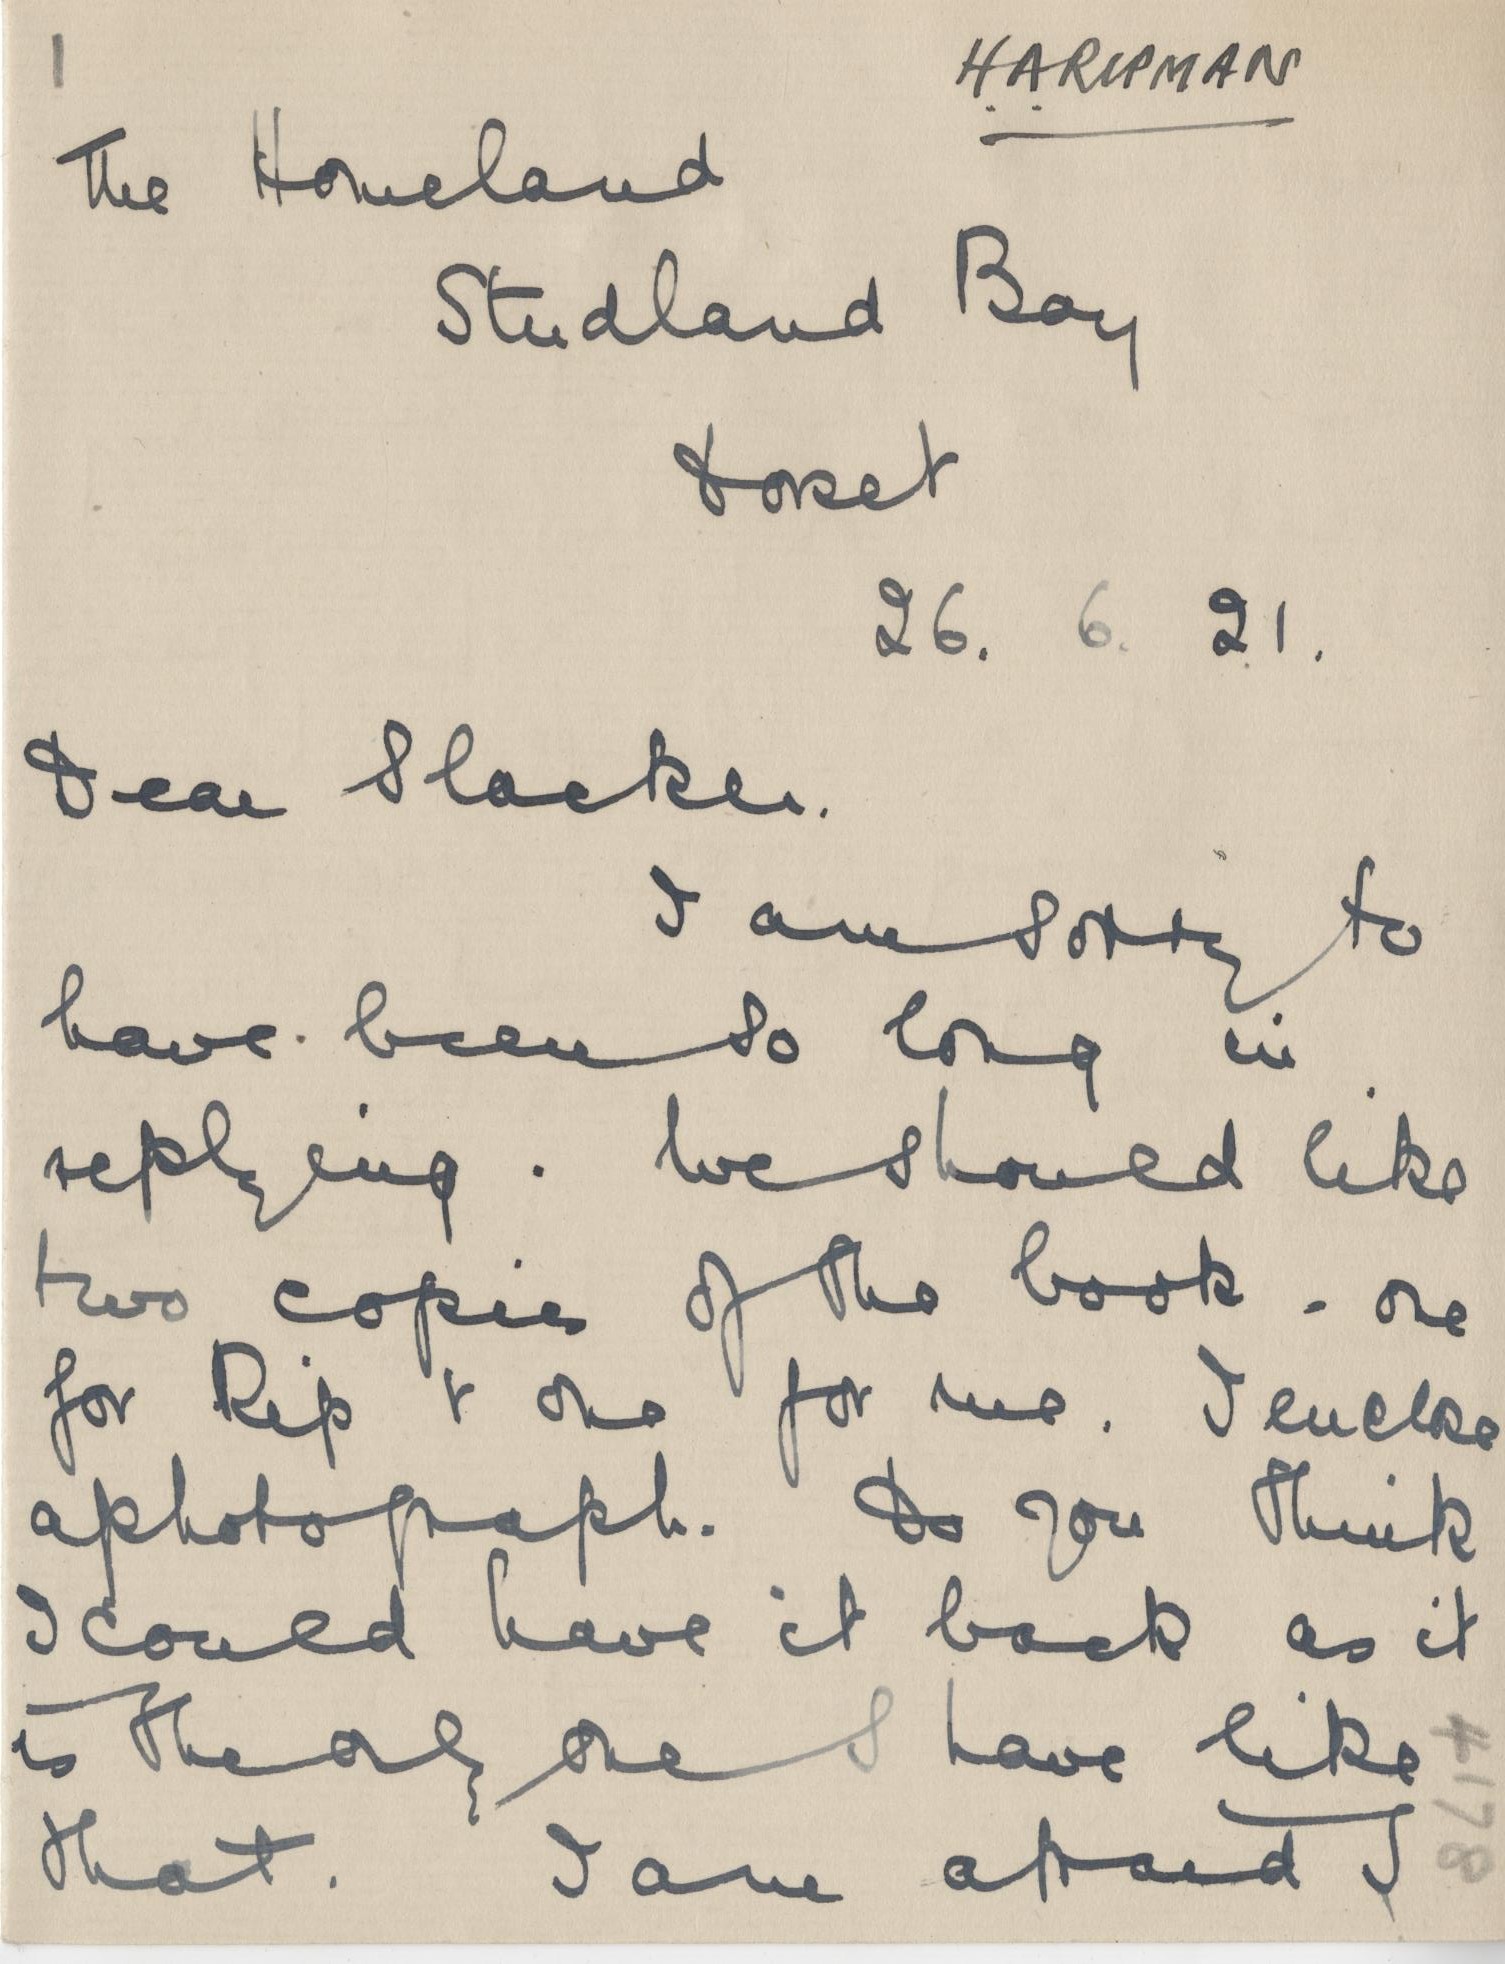 1
HARIPMAN
The Homeland
Studland Bay
Dorset
26. 6. 21.
Dear Slacker.
I am sorry to
have been so long in
replying. We should like
two copies of the book - one
for Rip & one for me. I enclose
a photograph. Do you think
I could have it back as it
is the only one I have like
that. I am afraid I
4178